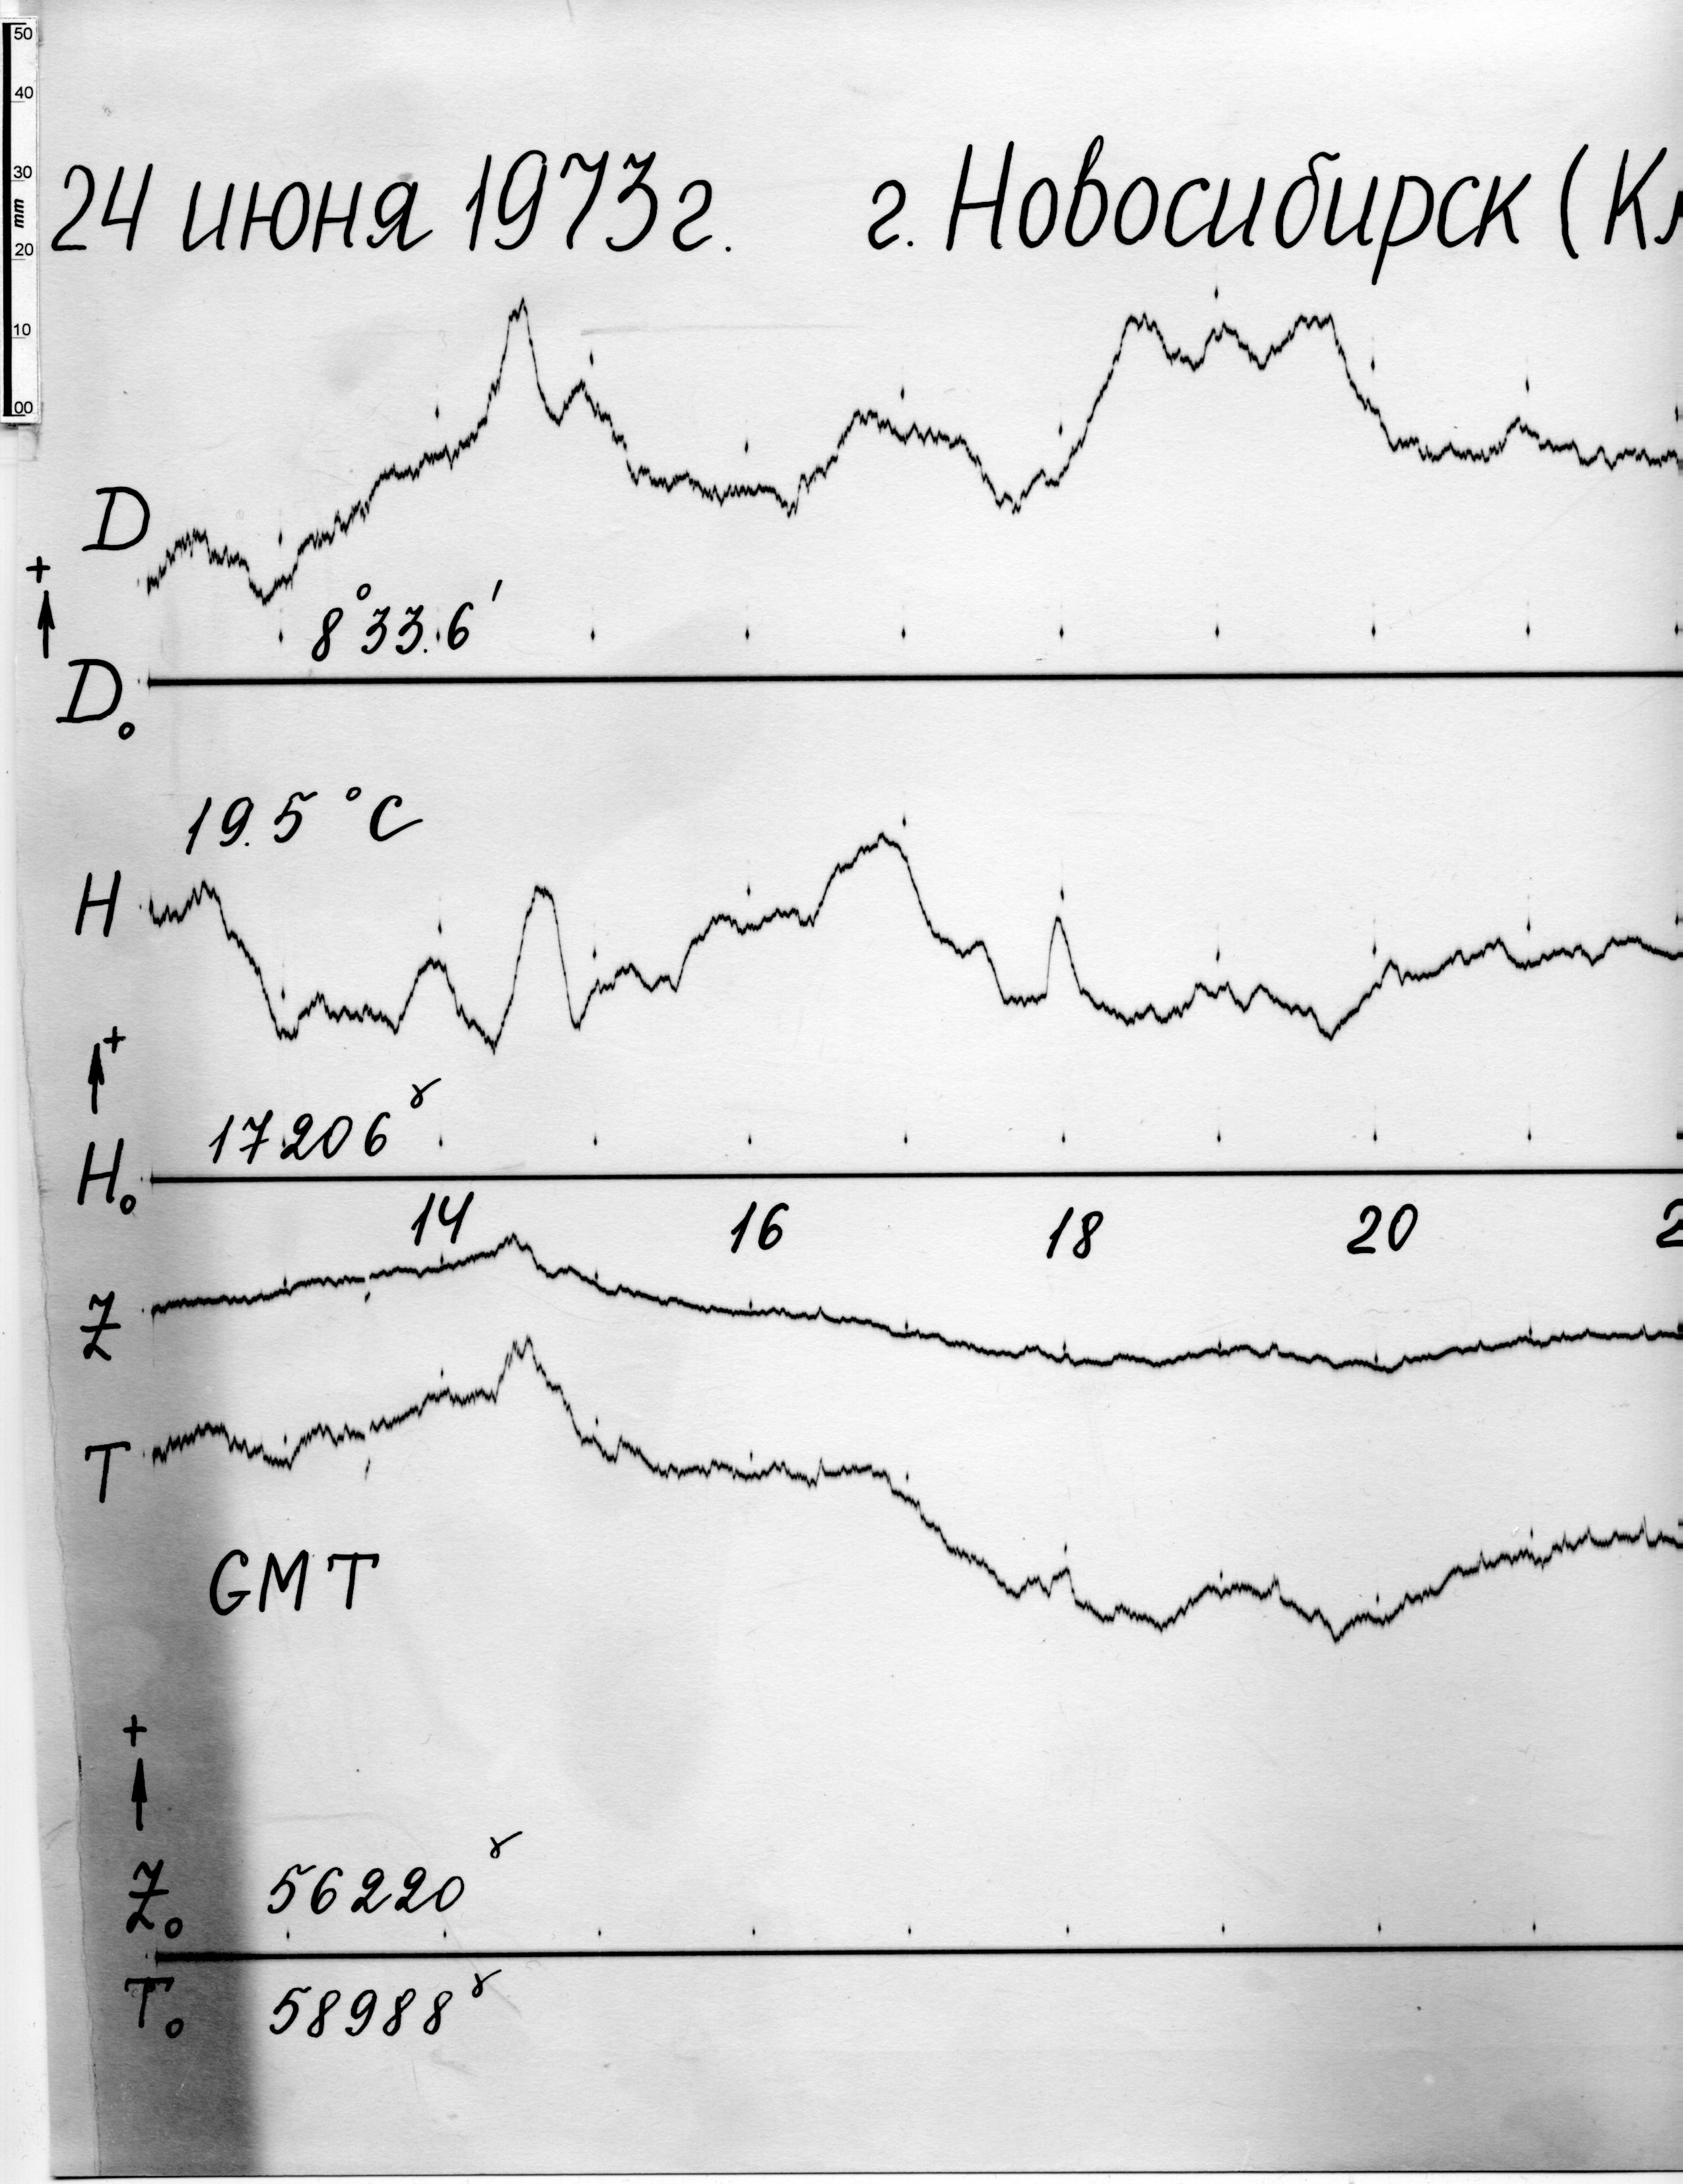 50
40
30
mm
20
10
00
24 июня 1973г. г. Новосибирск (Кл
D
+
8°33.6′
D₀
19.5°C
H
+
17206ᵞ
H₀
14 16 18 20 2
Z
T
GMT
+
Z₀ 56220ᵞ
T₀ 58988ᵞ